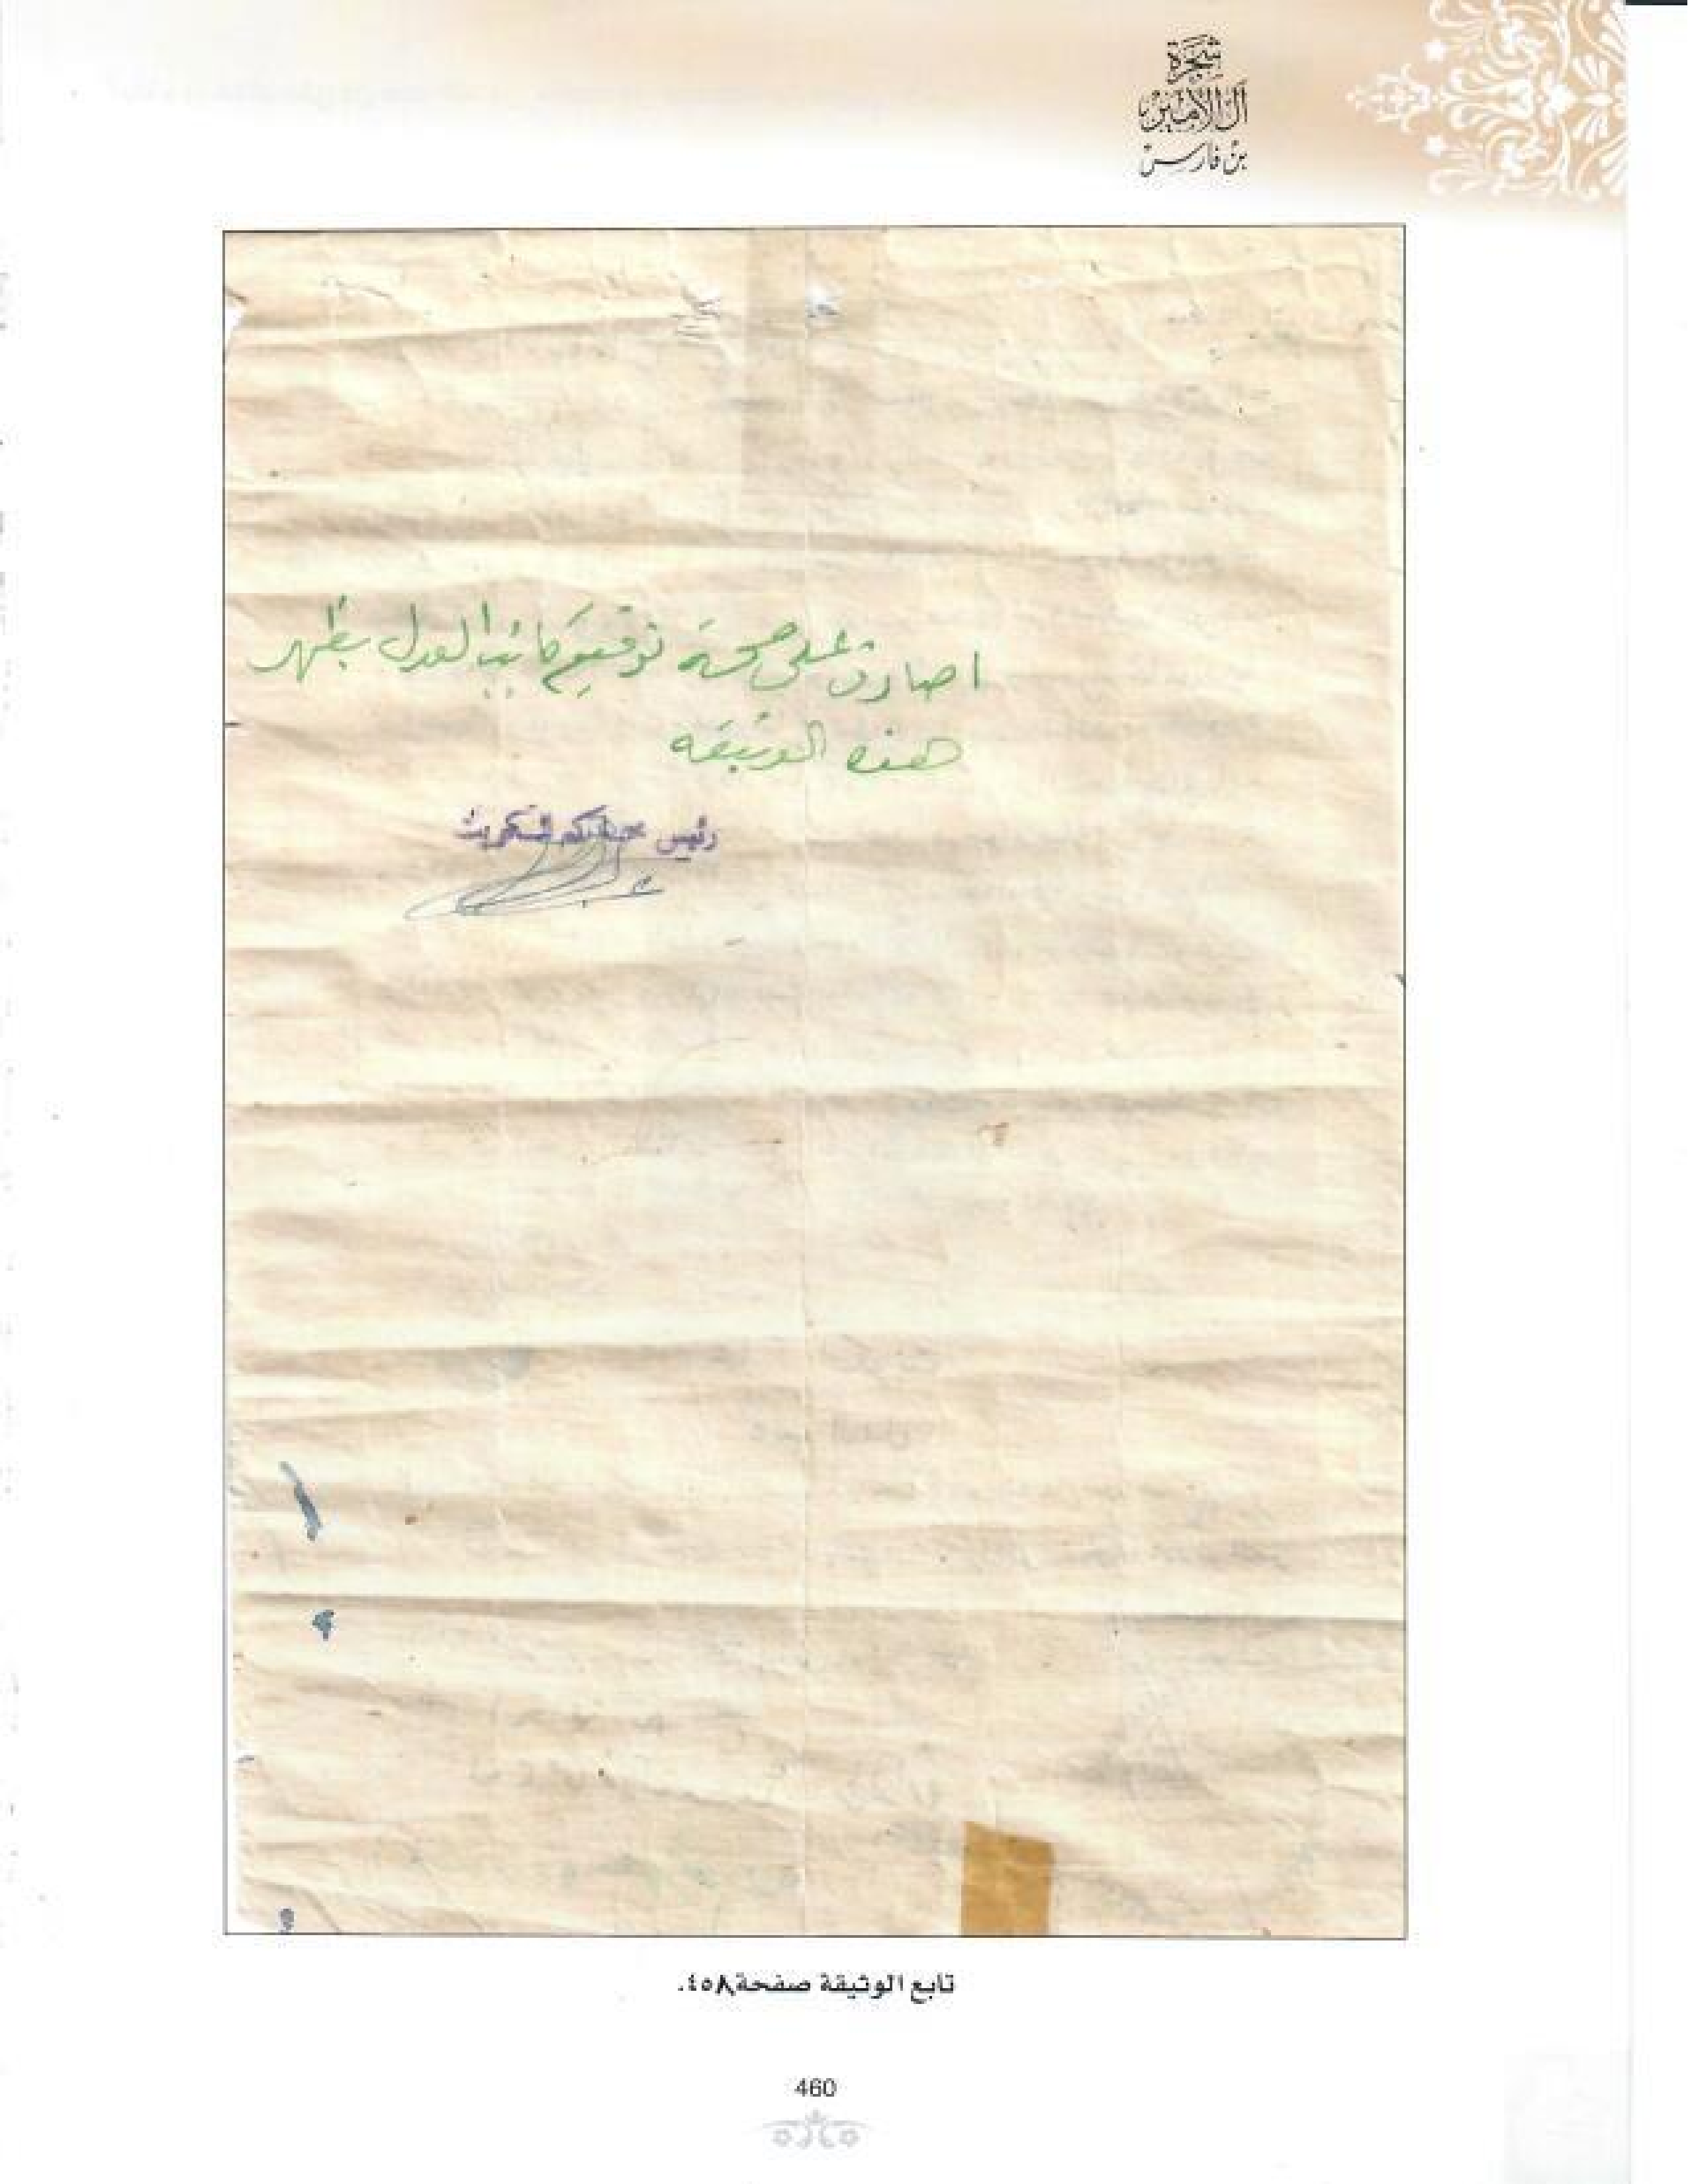 شجرة
آل الأمير
بن فارس
اصادق على صحة توقيع كاتب العدل بظهر
هذه الوثيقه
رئيس محاكم
تابع الوثيقة صفحة٤٥٨.
460